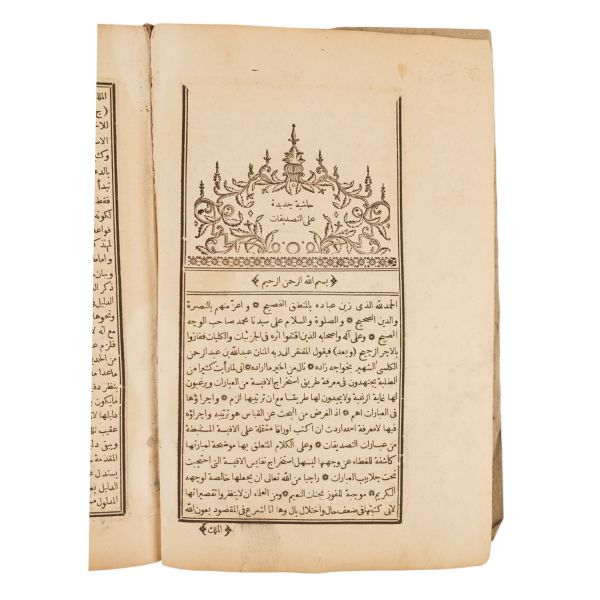 حاشية جديدة
على التصديقات
بسم الله الرحمن الرحيم
الحمدلله الذى زين عباده بالمنطق الفصيح * واعز منهم بالنصرة
والدين الصحيح * والصلوة والسلام على سيدنا محمد صاحب الوجه
الصبيح * وعلى آله واصحابه الذين اقتفوا اثره فى الجزئيات والكليات ففازوا
بالاجر الرجيح (وبعد) فيقول المفتقر الى ربه المنان عبدالله بن عبدالرحمن
الكلسى الشهير بخواجه زاده * نال من الخير ما اراده * انى لما رأيت كثيرا من
الطلبة يجتهدون فى معرفة طريق استخراج الاقيسة من العبارات ويرغبون
لها غاية الرغبة ولا يجدون لها طريقا مع ان ترتيبها الزم * واجراؤها
فى العبارات اهم * اذ الغرض من البحث عن القياس هو ترتيبه واجراؤه
فيها لا معرفة اسمه اردت ان اكتب اوراقا مشتملة على الاقيسة المستنبطة
من عبارات التصديقات * وعلى الكلام المتعلق بها موضحة لعباراتها
كاشفة للغطاء عن وجهها ليسهل استخراج نفايس الاقيسة التى احتجبت
تحت جلابيب العبارات * راجيا من الله تعالى ان يجعلها خالصة لوجهه
الكريم * موجبة للفوز بجنات النعيم * ومن العلماء ان لا ينظروا تقصيراتها
لانى كتبتها فى ضعف حال واختلال بال وها انا اشرع فى المقصود بعون الله
الملك